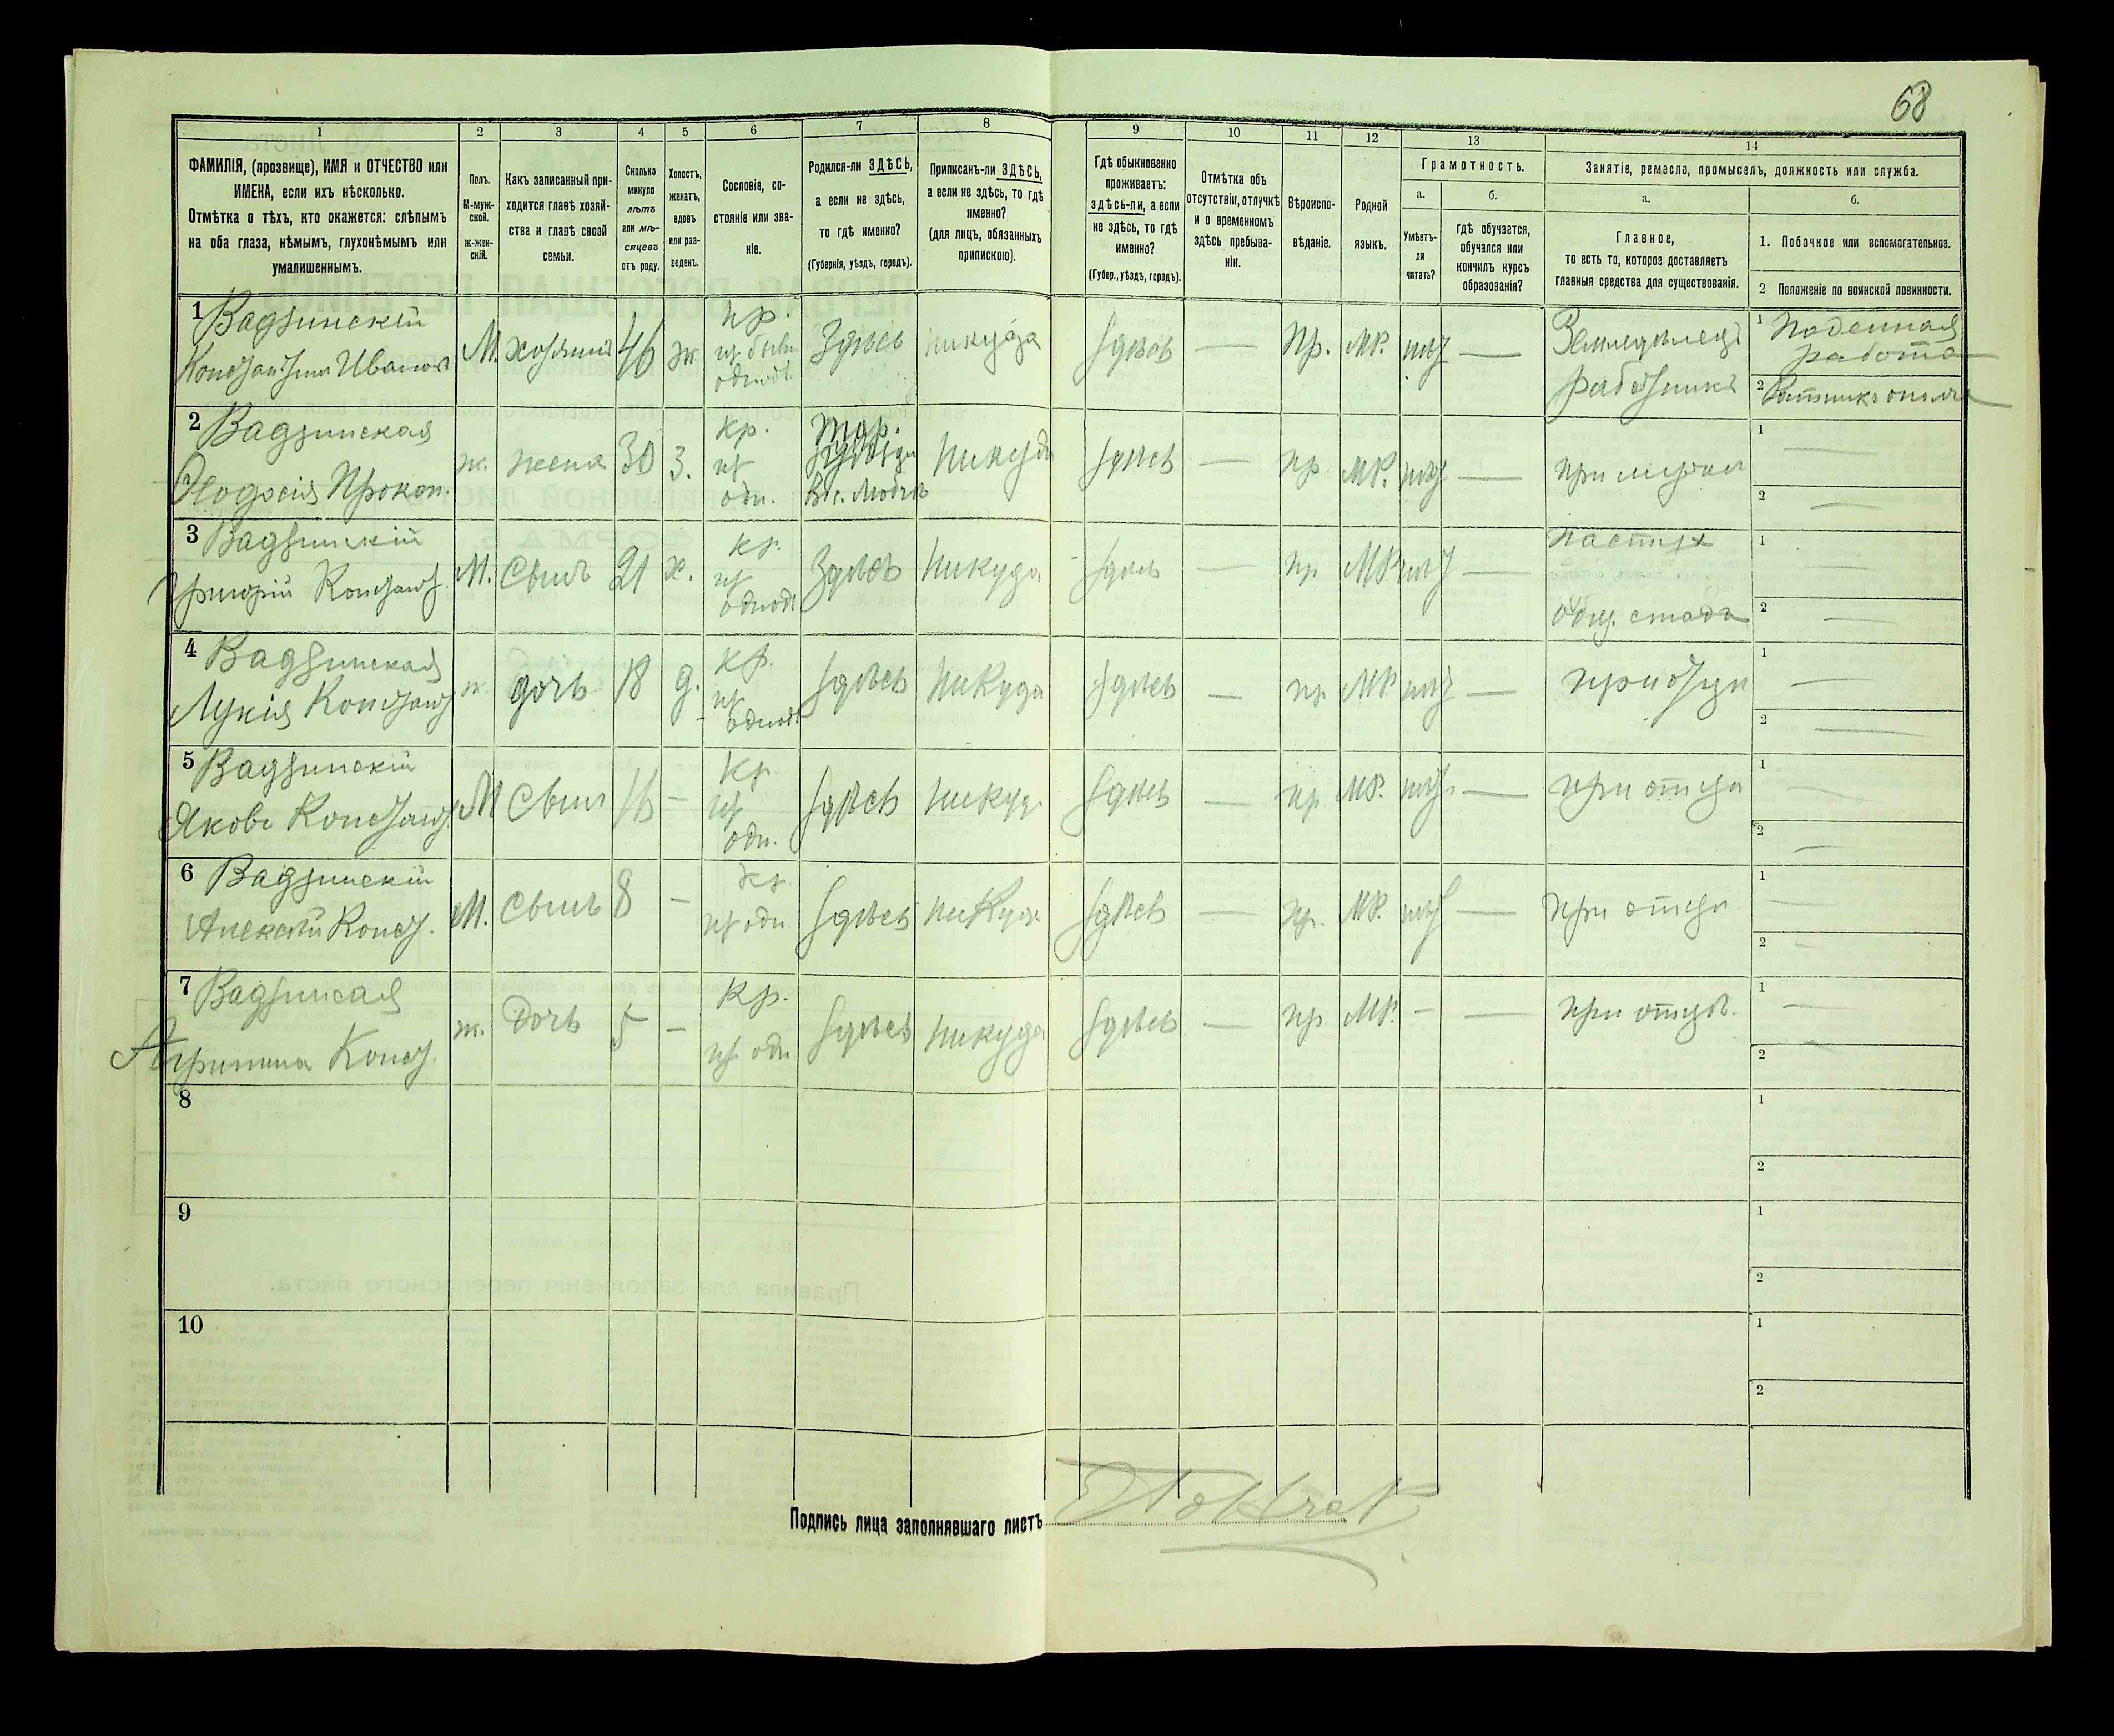 68
1 2 3 4 5 6 7 8 9 10 11 12 13 14
ФАМИЛІЯ, (прозвище), ИМЯ и ОТЧЕСТВО или
ИМЕНА, если ихъ нѣсколько.
Отмѣтка о тѣхъ, кто окажется: слѣпымъ
на оба глаза, нѣмымъ, глухонѣмымъ или
умалишеннымъ.
Полъ.
М-муж-
ской.
ж-жен-
скій.
Какъ записанный при-
ходится главѣ хозяй-
ства и главѣ своей
семьи.
Сколько
минуло
лѣтъ
или мѣ-
сяцевъ
отъ роду.
Холостъ,
женатъ,
вдовъ
или раз-
веденъ.
Сословіе, со-
стояніе или зва-
ніе.
Родился-ли ЗДѢСЬ,
а если не здѣсь,
то гдѣ именно?
(Губернія, уѣздъ, городъ).
Приписанъ-ли ЗДѢСЬ,
а если не здѣсь, то гдѣ
именно?
(для лицъ, обязанныхъ
припискою).
Гдѣ обыкновенно
проживаетъ:
здѣсь-ли, а если
не здѣсь, то гдѣ
именно?
(Губер., уѣздъ, городъ).
Отмѣтка объ
отсутствіи, отлучкѣ
и о временномъ
здѣсь пребыва-
ніи.
Вѣроиспо-
вѣданіе.
Родной
языкъ.
Грамотность.
а.
Умѣетъ-
ли
читать?
б.
гдѣ обучается,
обучался или
кончилъ курсъ
образованія?
Занятіе, ремесло, промыселъ, должность или служба.
а.
Главное,
то есть то, которое доставляетъ
главныя средства для существованія.
б.
1. Побочное или вспомогательное.
2 Положеніе по воинской повинности.
1 Вадзинскій
Константин Иванов
М. хозяинъ 46 ж
Здѣсь никуда здѣсь — Пр. МР. нѣт —
Земледѣлец
работникъ
1 Поденная
работа
2 Ратникъ ополч
2 Вадзинская
Феодосія Прокоп.
ж. жена 30 З. кр.
из
одн.
Никуда здѣсь — пр МР. нѣт — при мужѣ
1 —
2 —
3 Вадзинскій
Григорій Констант.
М. Сынъ 21 х. кр.
из
однод
Здѣсь Никуда здѣсь — пр МР нѣт —
пастух
общ. стада
1 —
2 —
4 Вадзинская
Лукія Констант
ж. дочь 18 д. кр.
из
однод.
здѣсь Никуда здѣсь — пр МР нѣт — при отцѣ
1 —
2 —
5 Вадзинскій
Яковъ Констант.
М Сынъ 16 — кр
из
одн.
здѣсь никуда здѣсь — пр МР. нѣт — при отцѣ
1 —
2 —
6 Вадзинскій
Алексѣй Конст.
М. Сынъ 8 — кр
из одн
здѣсь никуда здѣсь — пр. МР. нѣт — при отцѣ
1 —
2 —
7 Вадзинсая
Агрипина Конст.
ж. Дочь 5 — кр.
из одн
здѣсь никуда здѣсь — пр МР. - — при отцѣ.
1 —
2 —
8
1
2
9
1
2
10
1
2
Подпись лица заполнявшаго листъ